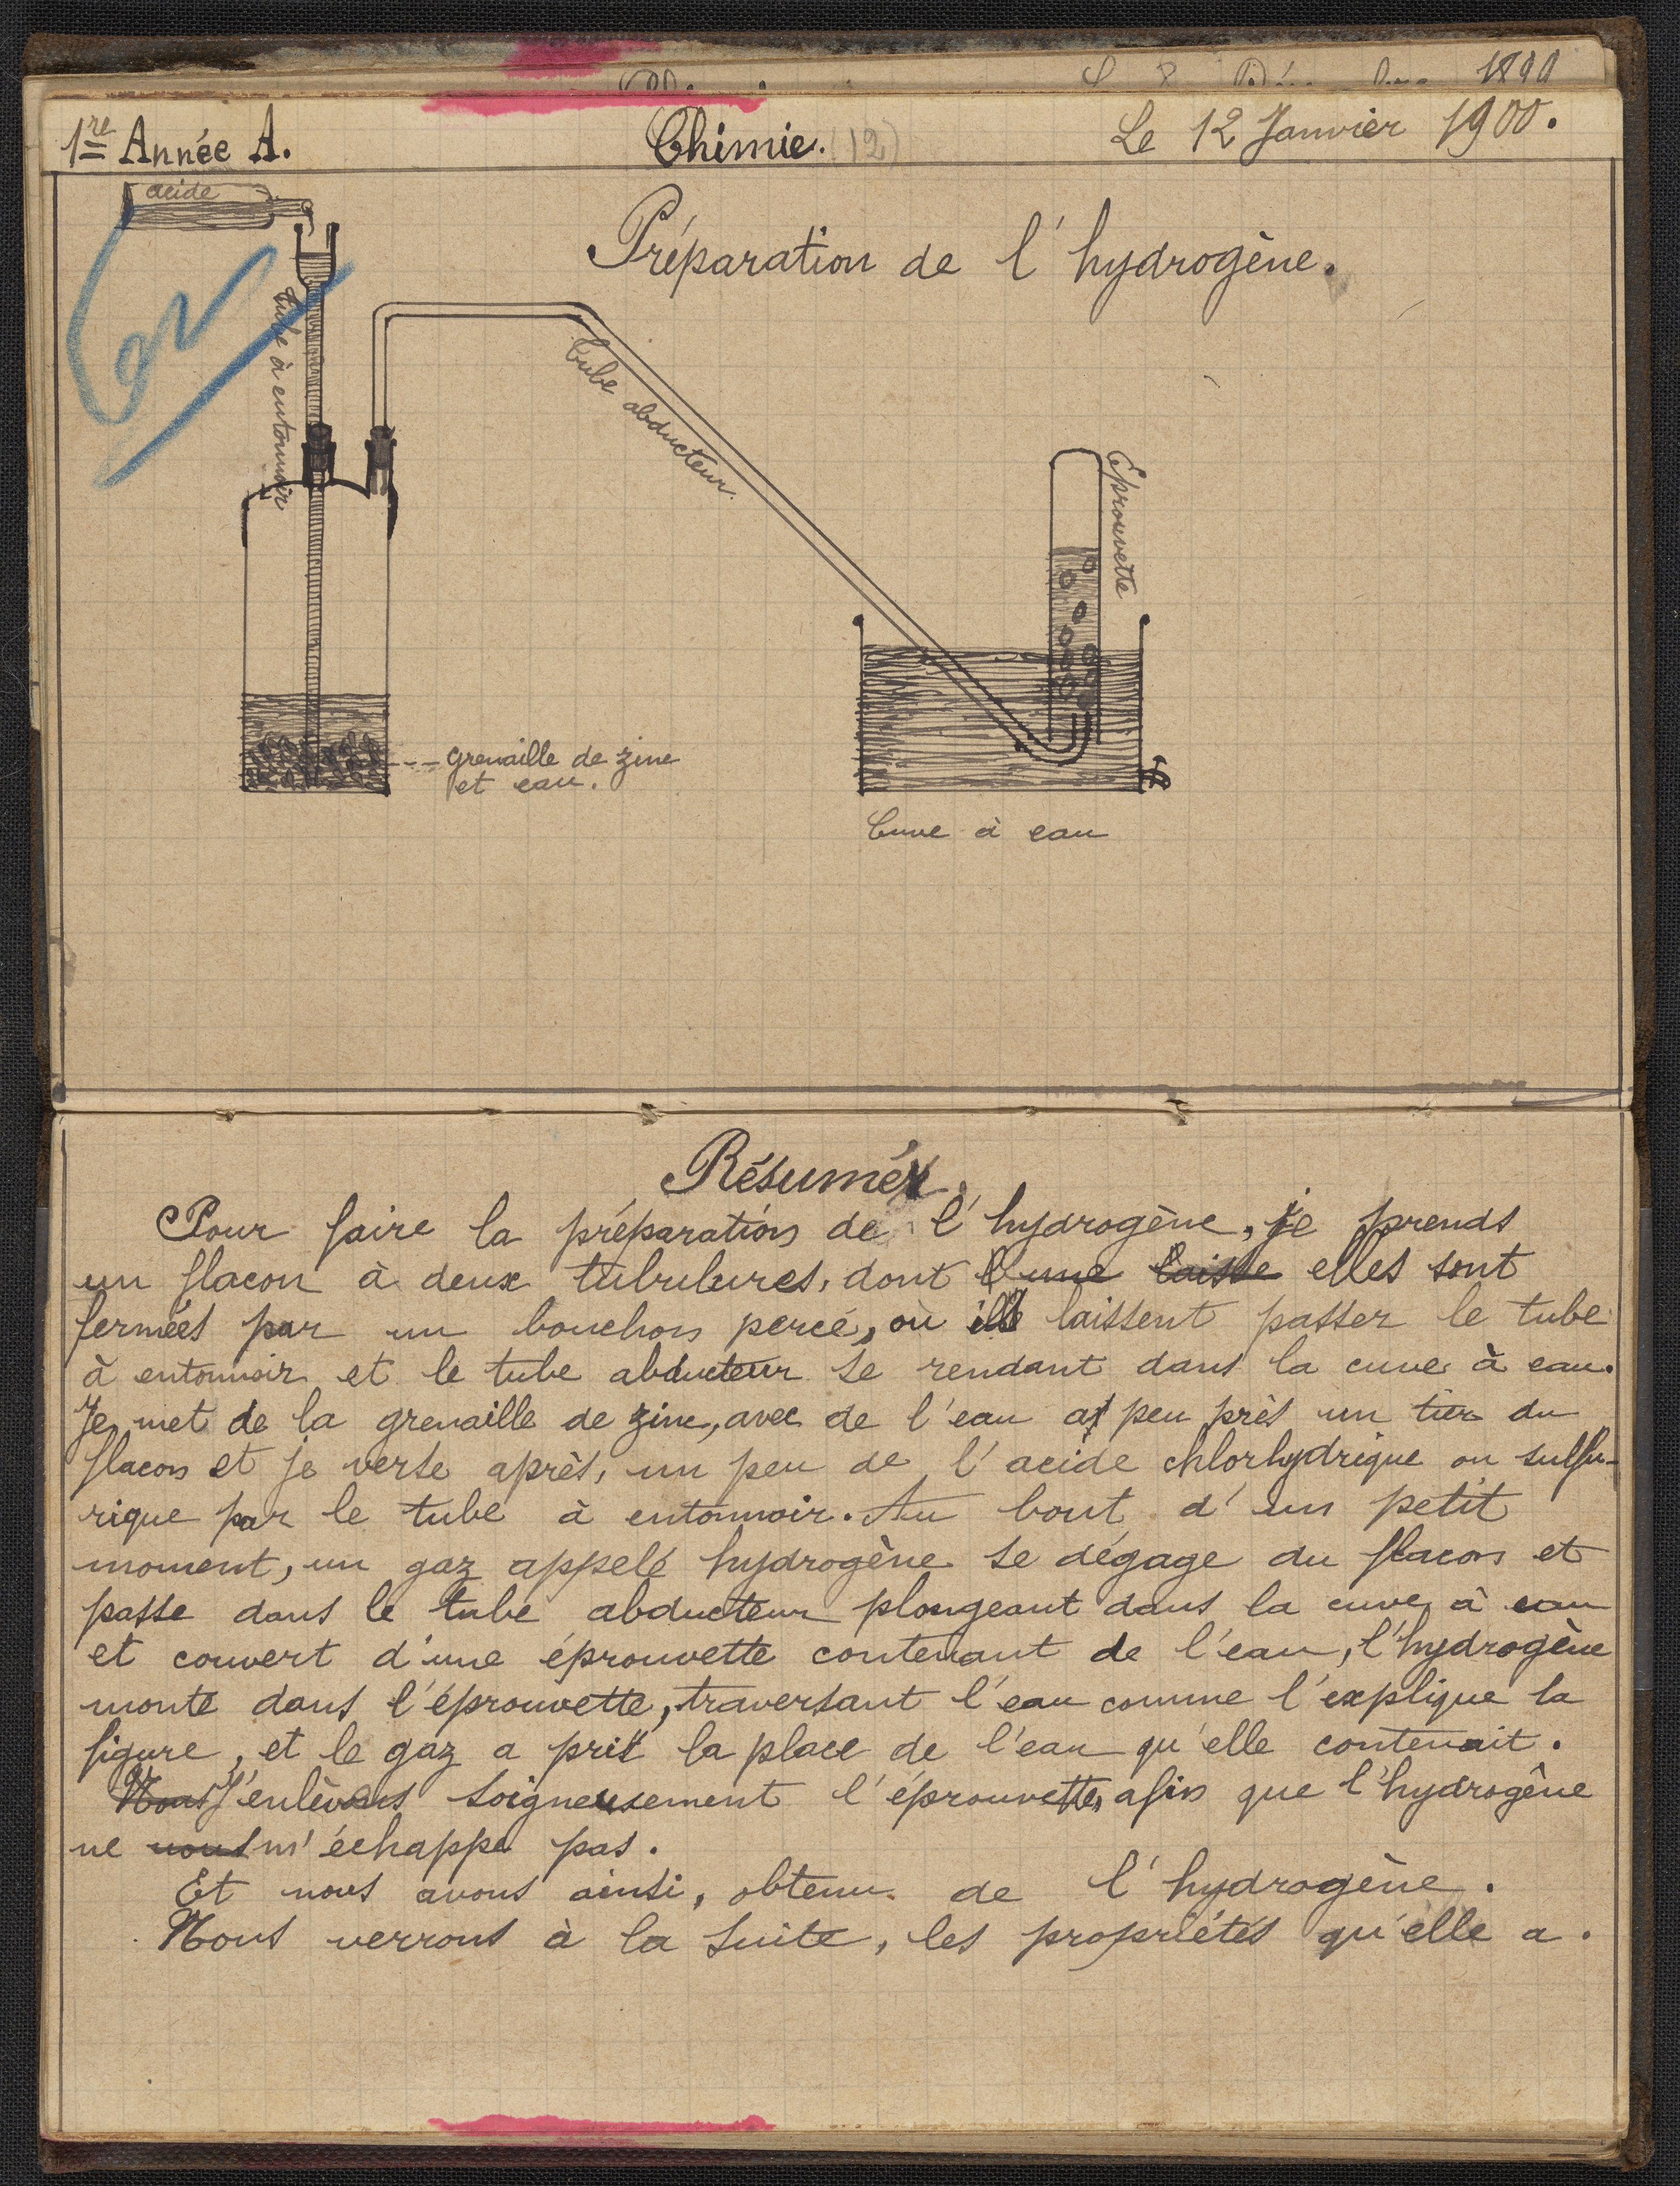 1899
1re Année A.
Chimie. (12)
Le 12 Janvier 1900.
acide
Préparation de l'hydrogène.
tube à entonnoir
tube abducteur.
Eprouvette
grenaille de zinc
et eau.
Cuve à eau
Résumé.
Pour faire la préparation de l'hydrogène, je prends
un flacon à deux tubulures, dont l'une laisse elles sont
fermées par un bouchon percé, où ils laissent passer le tube
à entonnoir et le tube abducteur se rendant dans la cuve à eau.
Je met de la grenaille de zinc, avec de l'eau a peu près un tier du
flacon et je verse après, un peu de l'acide chlorhydrique ou sulfu-
rique par le tube à entonnoir. Au bout d'un petit
moment, un gaz appelé hydrogène se dégage du flacon et
passe dans le tube abducteur plongeant dans la cuve à eau
et couvert d'une éprouvette contenant de l'eau, l'hydrogène
monte dans l'éprouvette, traversant l'eau comme l'explique la
figure, et le gaz a pris la place de l'eau qu'elle contenait.
Nous J'enlève soigneusement l'éprouvette, afin que l'hydrogène
ne nous m'échappe pas.
Et nous avons ainsi, obtenu de l'hydrogène.
Nous verrons à la suite, les propriétés qu'elle a.